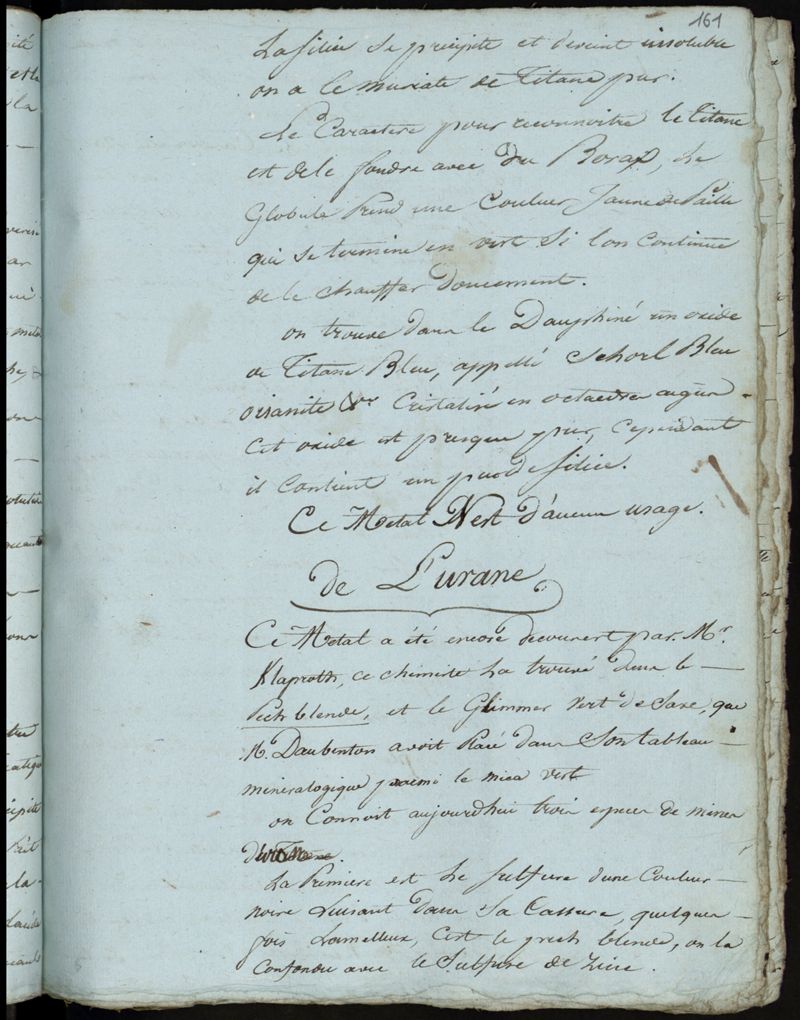 161
La silice se precipite et devient insoluble
on a le muriate de Titane pur.
Le Caractere pour reconnoitre le titane
est de le fondre avec du Borax, Le
Globule Prend une Couleur Jaune de Paille
qui se termine en vert Si lon Continue
de le chauffer doucement.
on trouve dans le Dauphiné un oxide
de Titane Bleu, appellé Schorl Bleu
oisanite &c Cristalisé en octaedres aigus
Cet oxide est presque pur, Cependant
il Contient un peu de silice.
Ce Metal N'est d'aucun usage.
de L'urane
Ce Metal a été encore decouvert par Mr.
Klaproth, ce chimiste La trouvé dans le
Pech blende, et le Glimmer Vert de Saxe, que
Mr Daubenton avoit Placé dans Son tableau
mineralogique parmi le mica vert
on Connoit aujourdhui trois especes de mines
La Premiere est Le Sulfure dune Couleur
noire Luisant dans Sa Cassure, quelques
fois Lamelleux, C'est le pech blende, on la
Confondu avec le Sulfure de Zinc.